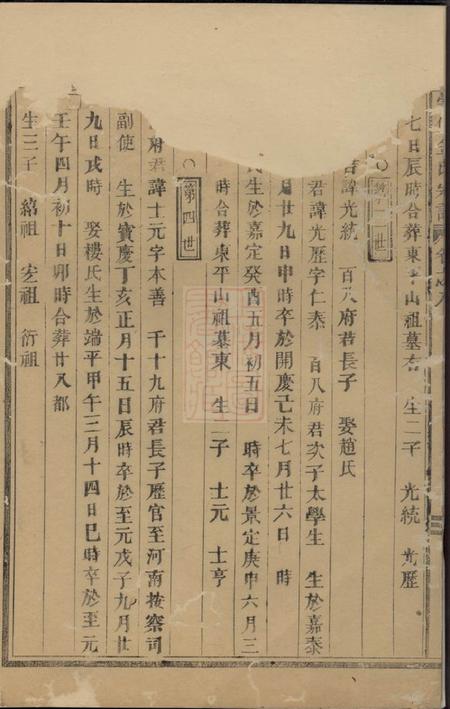 七日辰時合葬東平山祖墓右 生二子 光統 光歷
世
諱光統 百八府君長子 娶趙氏
君諱光歷字仁泰 百八府君次子太學生 生於嘉泰
月廿九日申時卒於開慶己未七月廿六日 時
氏生於嘉定癸酉五月初五日 時卒於景定庚申六月三
時合葬東平山祖墓東 生二子 士元 士亨
○第四世
府君諱士元字本善 千十九府君長子歷官至河南按察司
副使 生於寶慶丁亥正月十五日辰時卒於至元戊子九月廿
九日戌時 娶樓氏生於端平甲午三月十四日巳時卒於至元
壬午四月初十日卯時合葬廿又都
生三子 紹祖 宏祖 衍祖